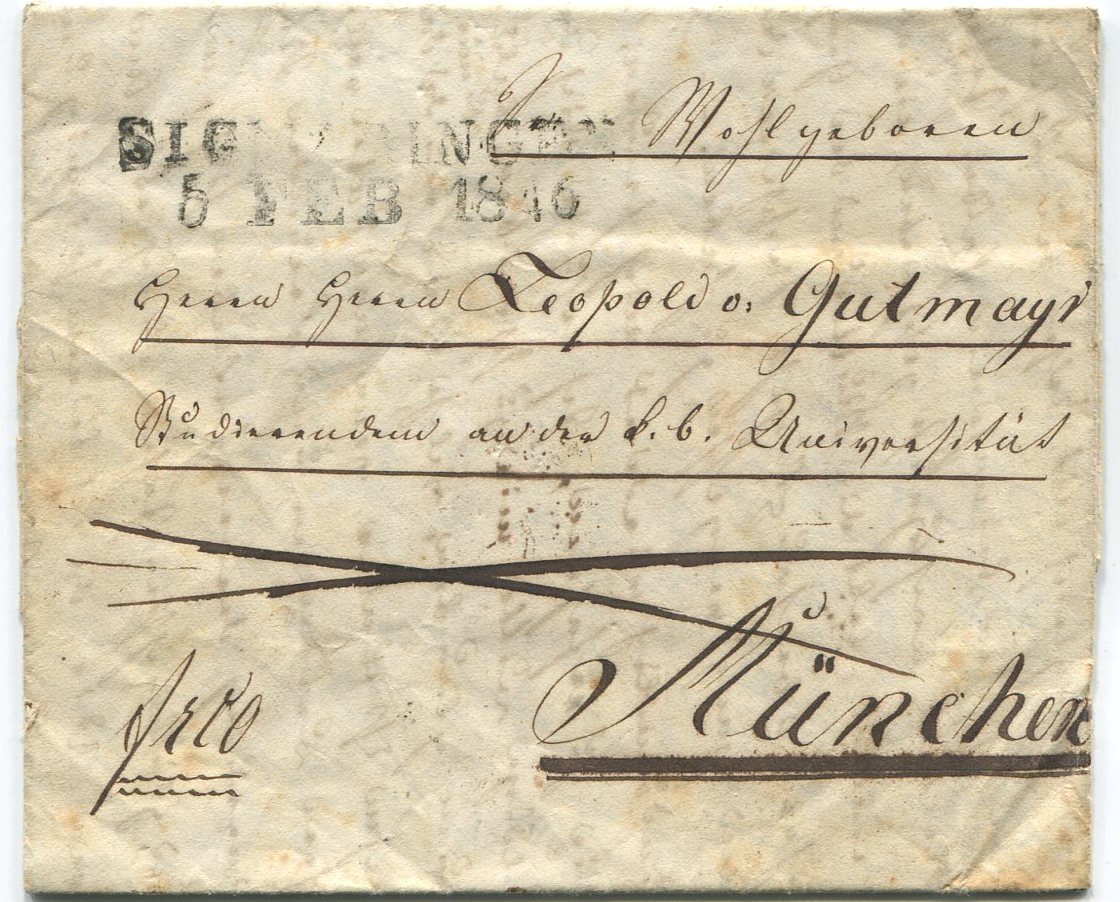 SIGMARINGEN
5 FEB 1846
Sr Wohlgeboren
Herrn Herrn Leopold v. Gutmayr
Studierendem an der k. b. Universität
München
frco